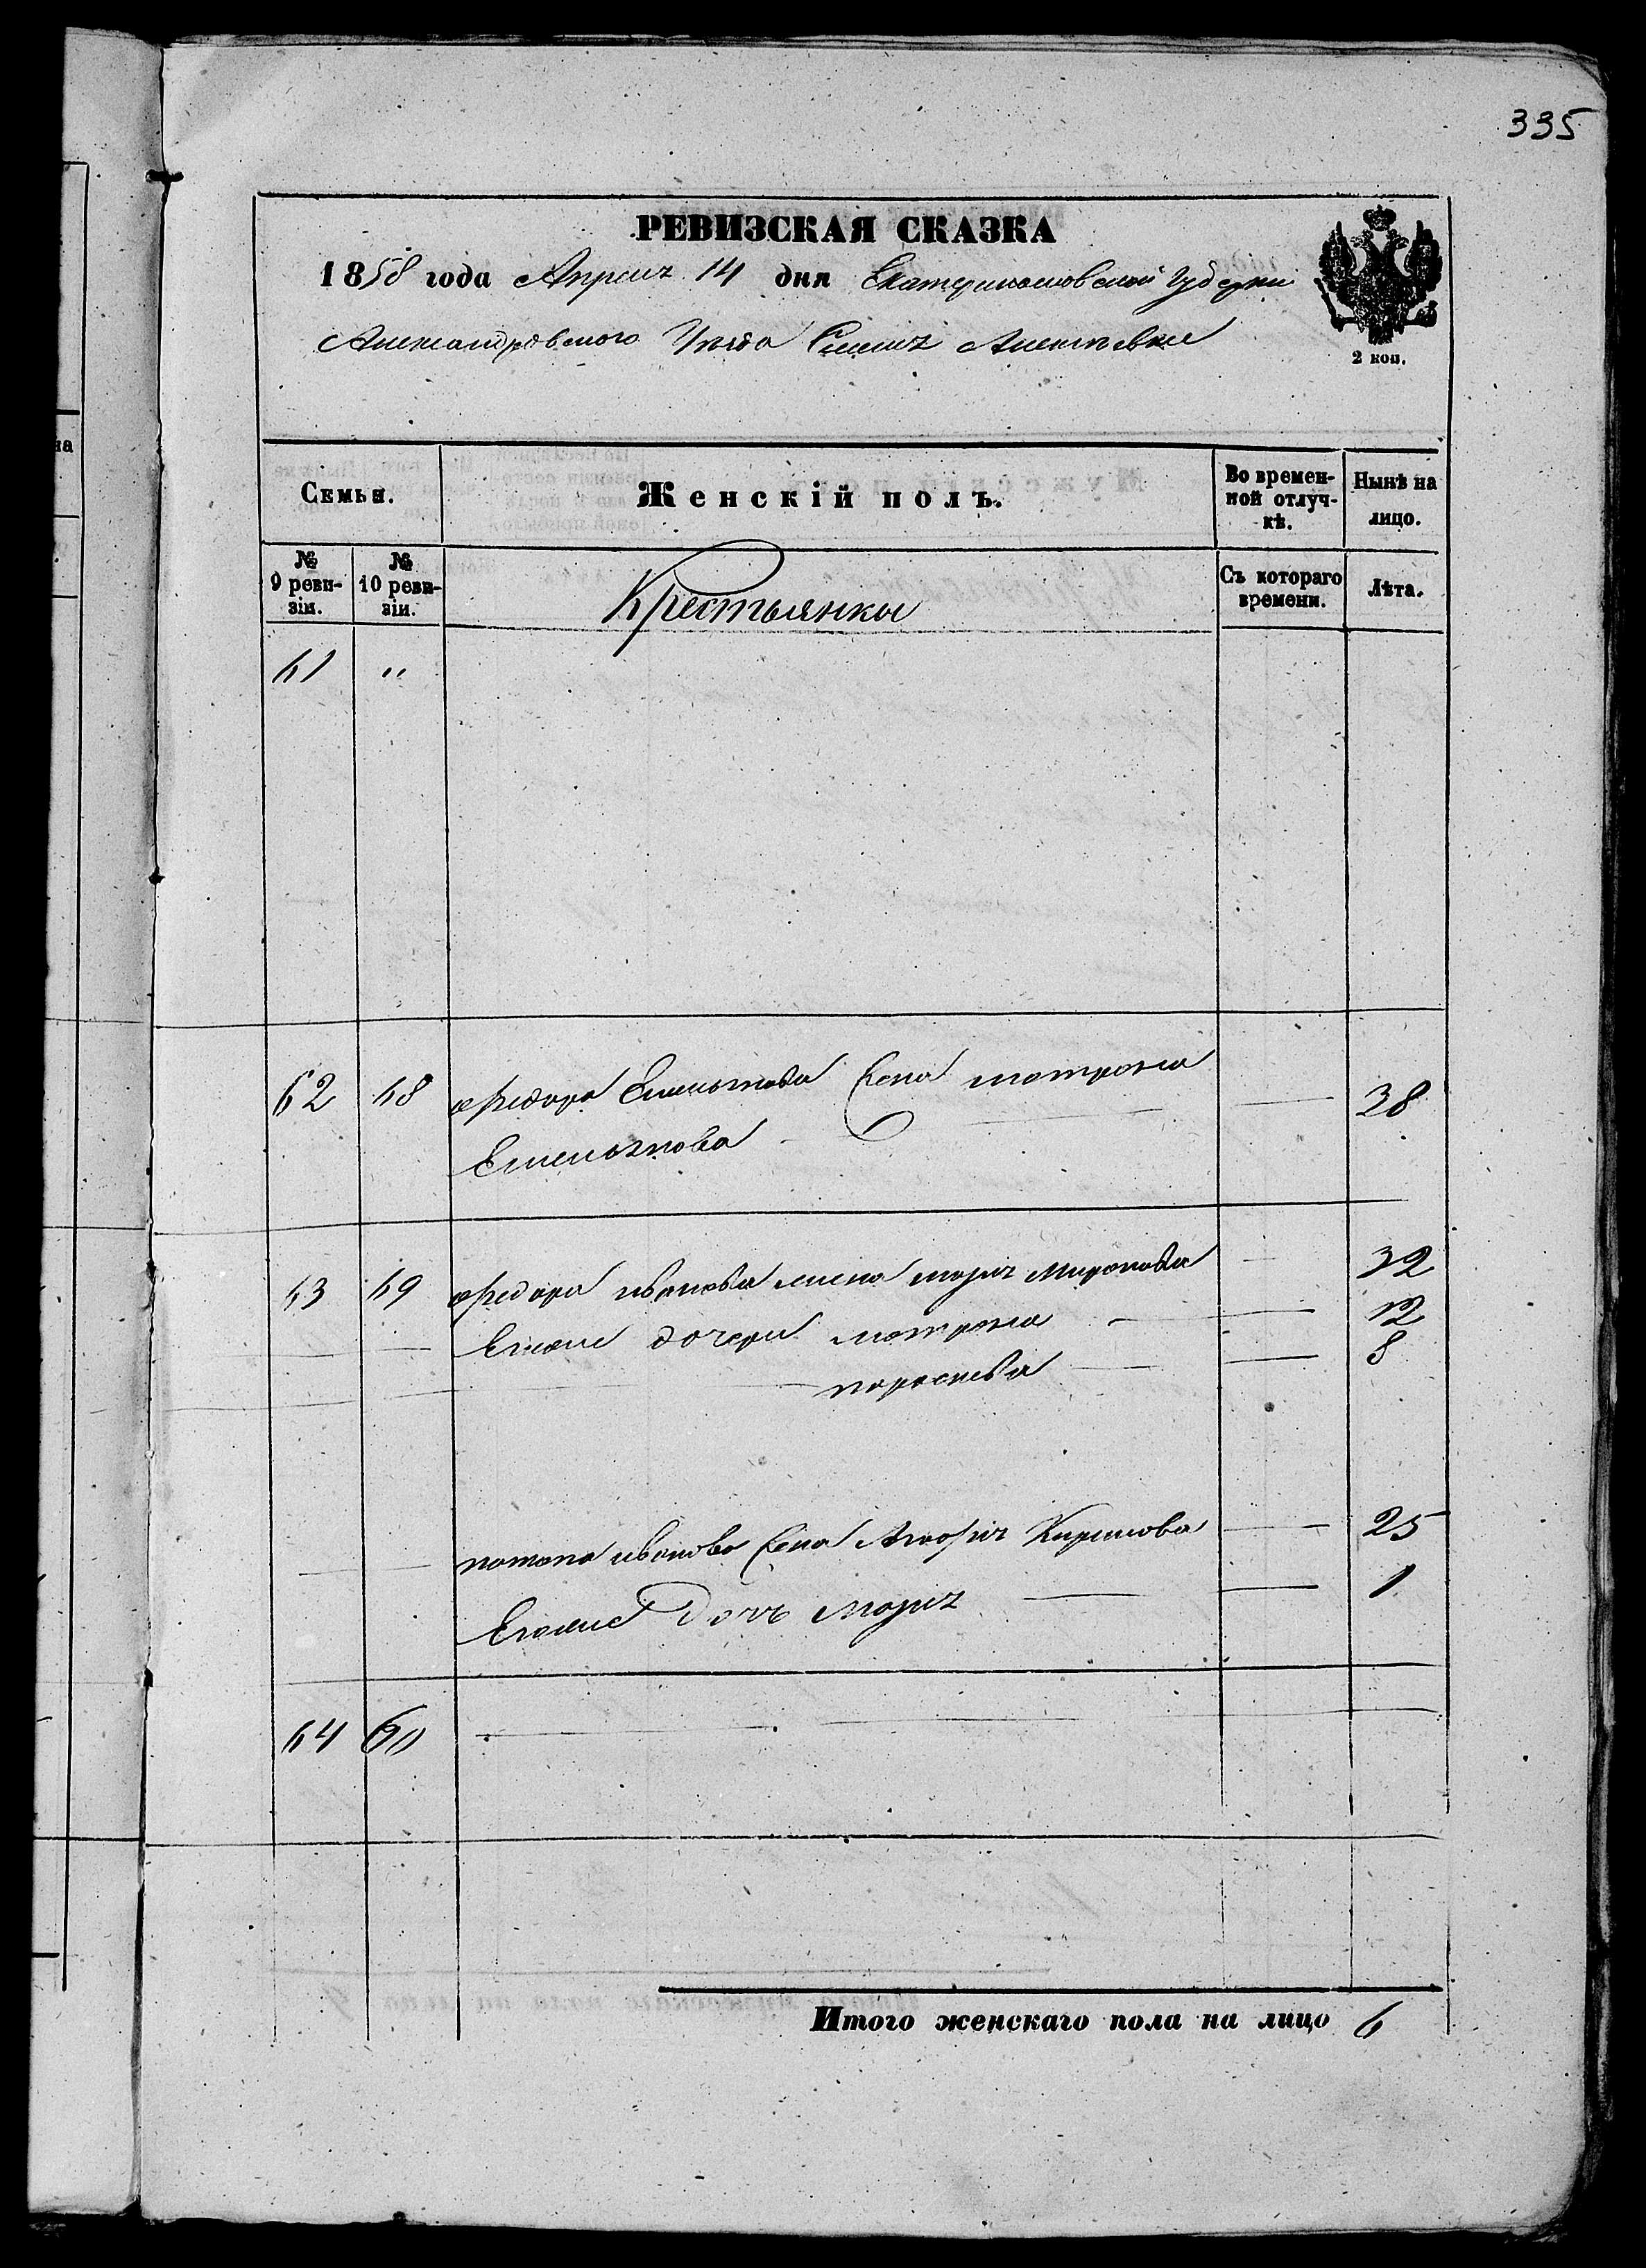 335
РЕВИЗСКАЯ СКАЗКА
1858 года Апреля 14 дня Екатеринославской Губерни
Александровского Уезда Алексеевки
2 коп.
Семья.
Женскій полъ.
Во времен-
ной отлуч-
кѣ.
Нынѣ на
лицо.
№
9 реви-
зіи.
№
10 реви-
зіи.
Крестьянки
Съ котораго
времени.
Лѣта.
61 "
62 58 федора Емельянова жена матрона 38
Емельянова
63 59 федора иванова жена марья Миронова 32
Егоже дочери матрона 12
парасковья 8
потапа иванова жена Кирилова 25
Егоже дочь марья 1
64 60
Итого женскаго пола на лицо 6
на